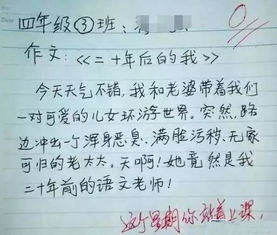 四年级③班:
作文:《二十年后的我》
今天天气不错,我和老婆带着我们
一对可爱的儿女环游世界。突然,路
边冲出一个浑身恶臭、满脸污秽、无家
可归的老太太。天啊!她竟然是我
二十年前的语文老师!
这个星期你站着上课。